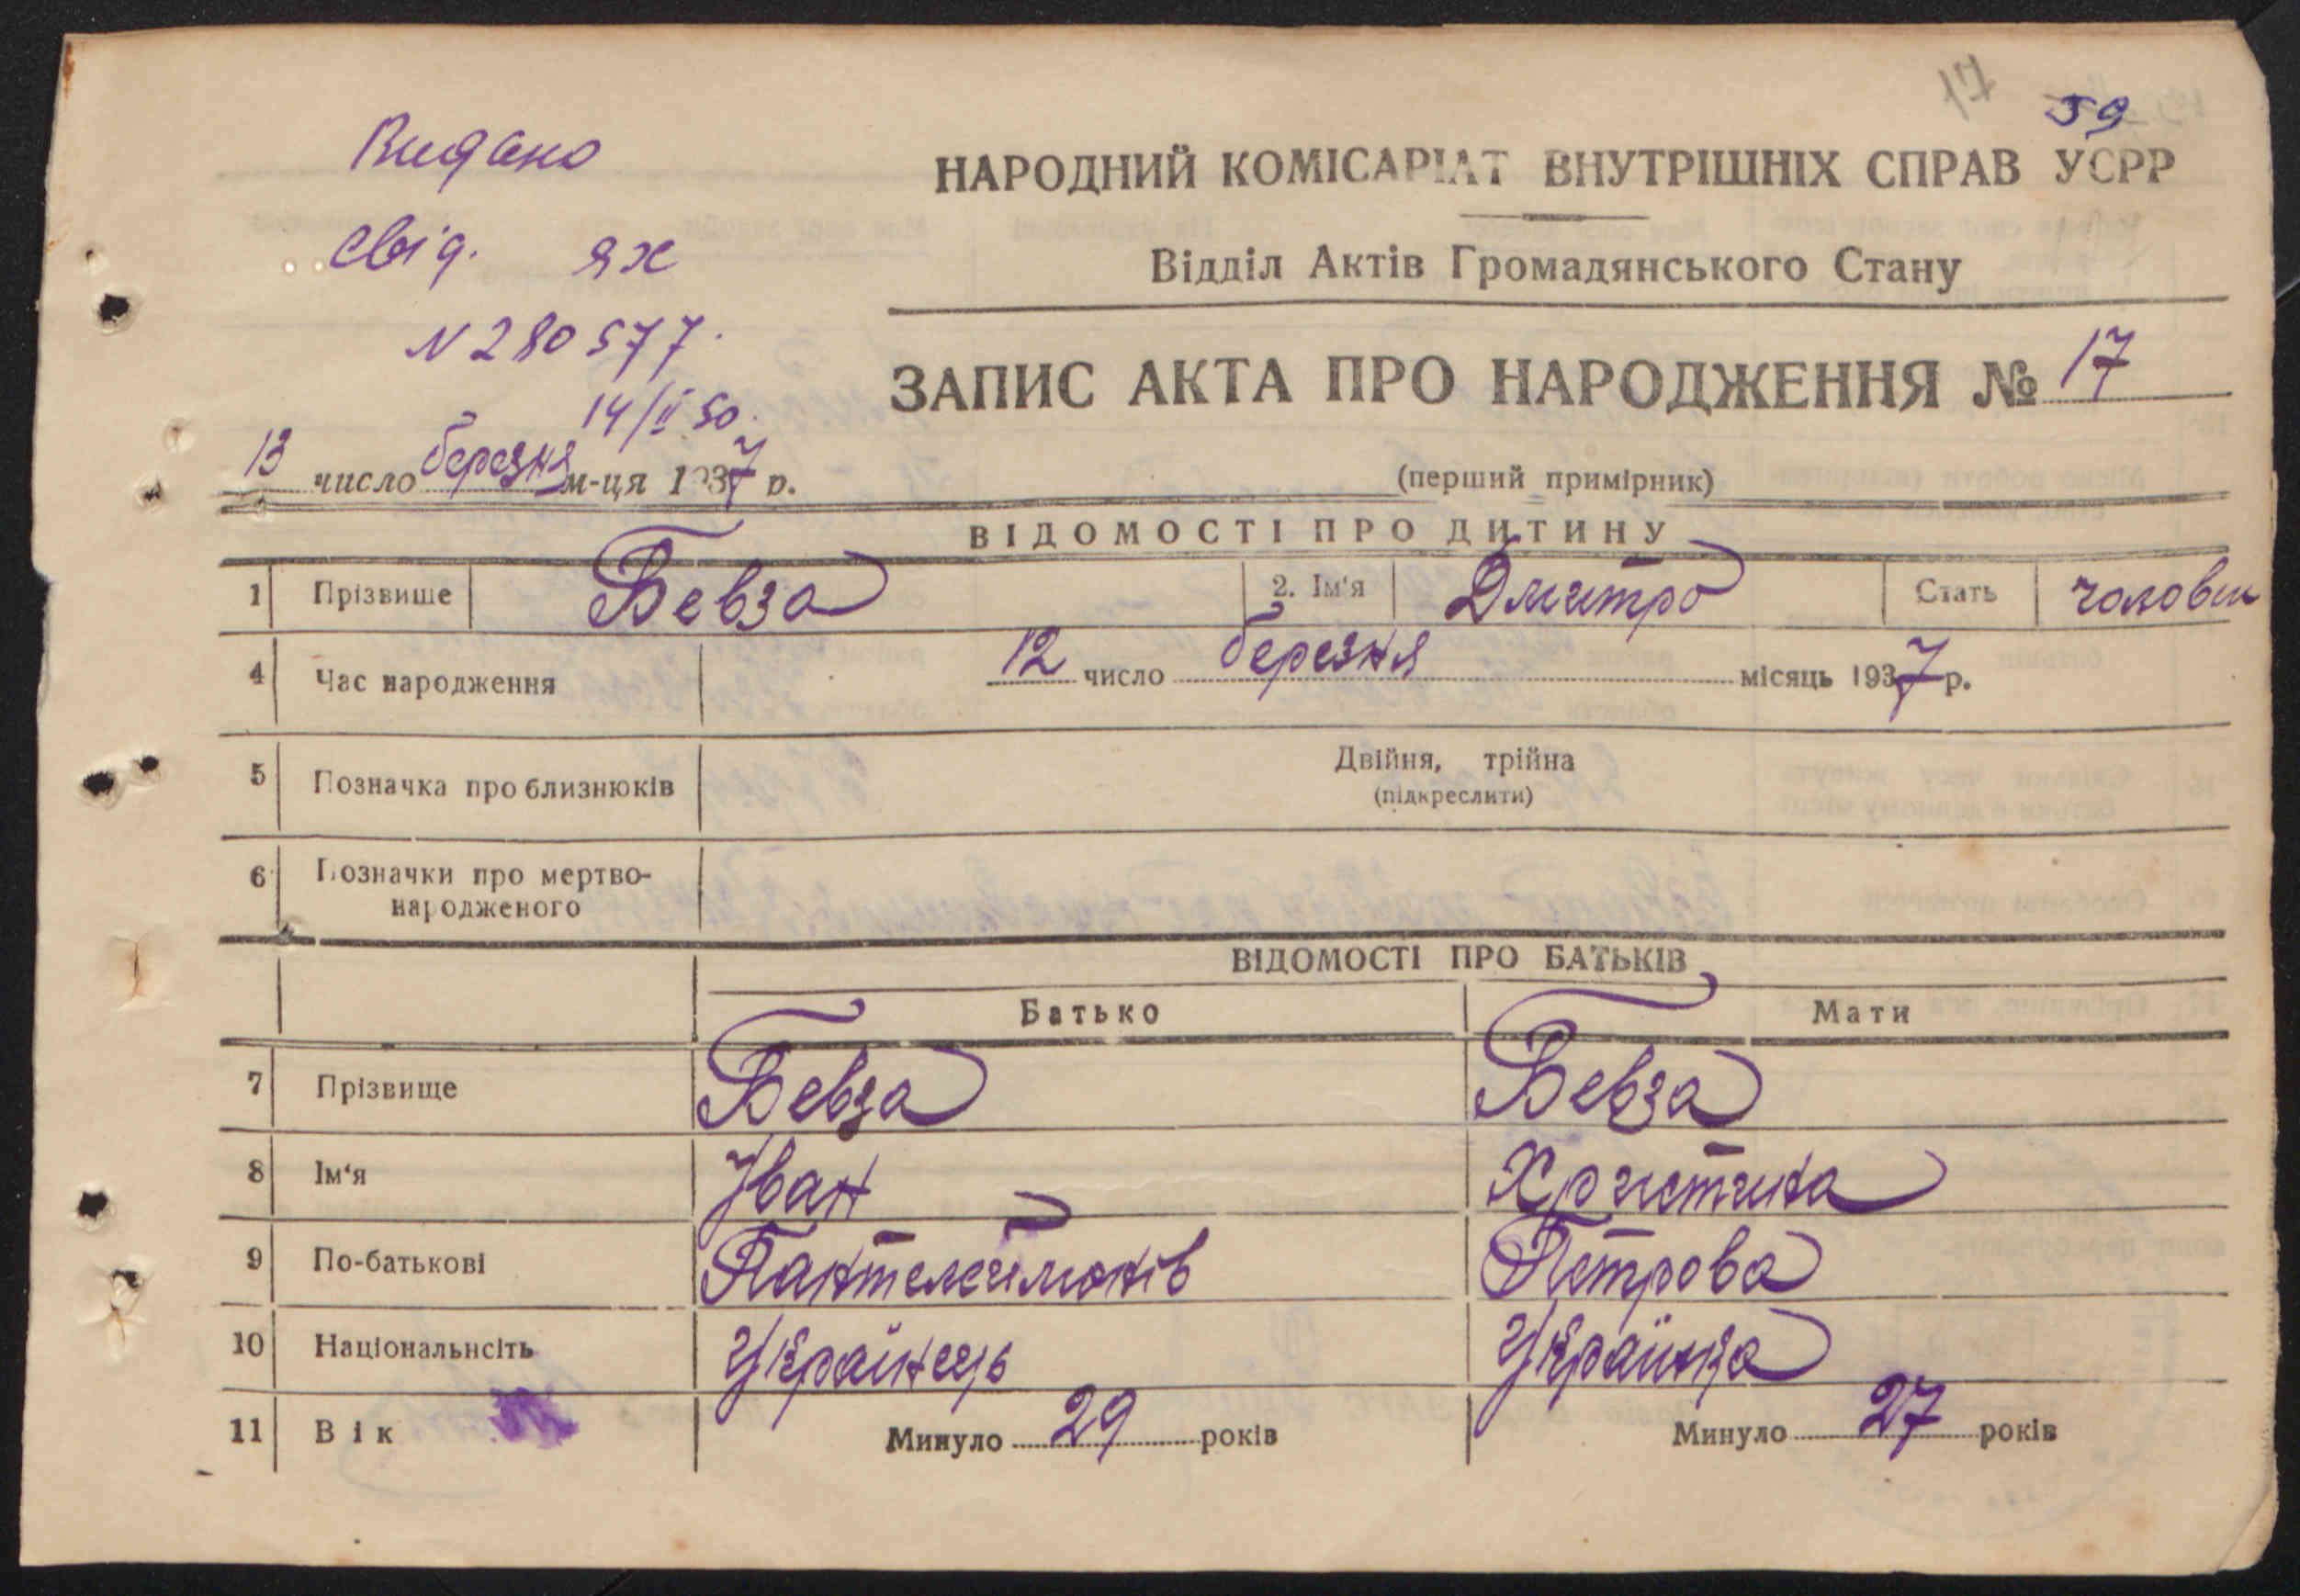 17
59
Видано
свід. ЯЖ
N 280577.
14/II 50.
НАРОДНИЙ КОМІСАРІАТ ВНУТРІШНІХ СПРАВ УСРР
Відділ Актів Громадянського Стану
ЗАПИС АКТА ПРО НАРОДЖЕННЯ № 17
13 число березня м-ця 1937 р.
(перший примірник)
ВІДОМОСТІ ПРО ДИТИНУ
1 Прізвище Бевза 2. Ім'я Дмитро Стать чоловіч
4 Час народження 12 число березня місяць 1937 р.
5 Позначка про близнюків Двійня, трійна
(підкреслити)
6 Позначки про мертво-
народженого
ВІДОМОСТІ ПРО БАТЬКІВ
Батько Мати
7 Прізвище Бевза Бевза
8 Ім'я Іван Христина
9 По-батькові Пантелеймонів Петрова
10 Національнсіть Українець Українка
11 Вік Минуло 29 років Минуло 27 років